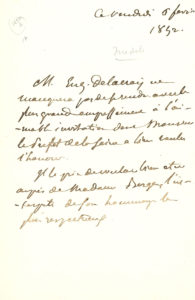 ce vendredi 6 fevrier
1852.
M. Eug. Delacroix ne
manquera pas de se rendre avec le
plus grand empressement à l'ai-
mable invitation dont Monsieur
le Préfet de la Seine a bien voulu
l'honorer.
Il le prie de vouloir bien être
auprès de Madame Berger l'in-
terprète de son hommage le
plus respectueux